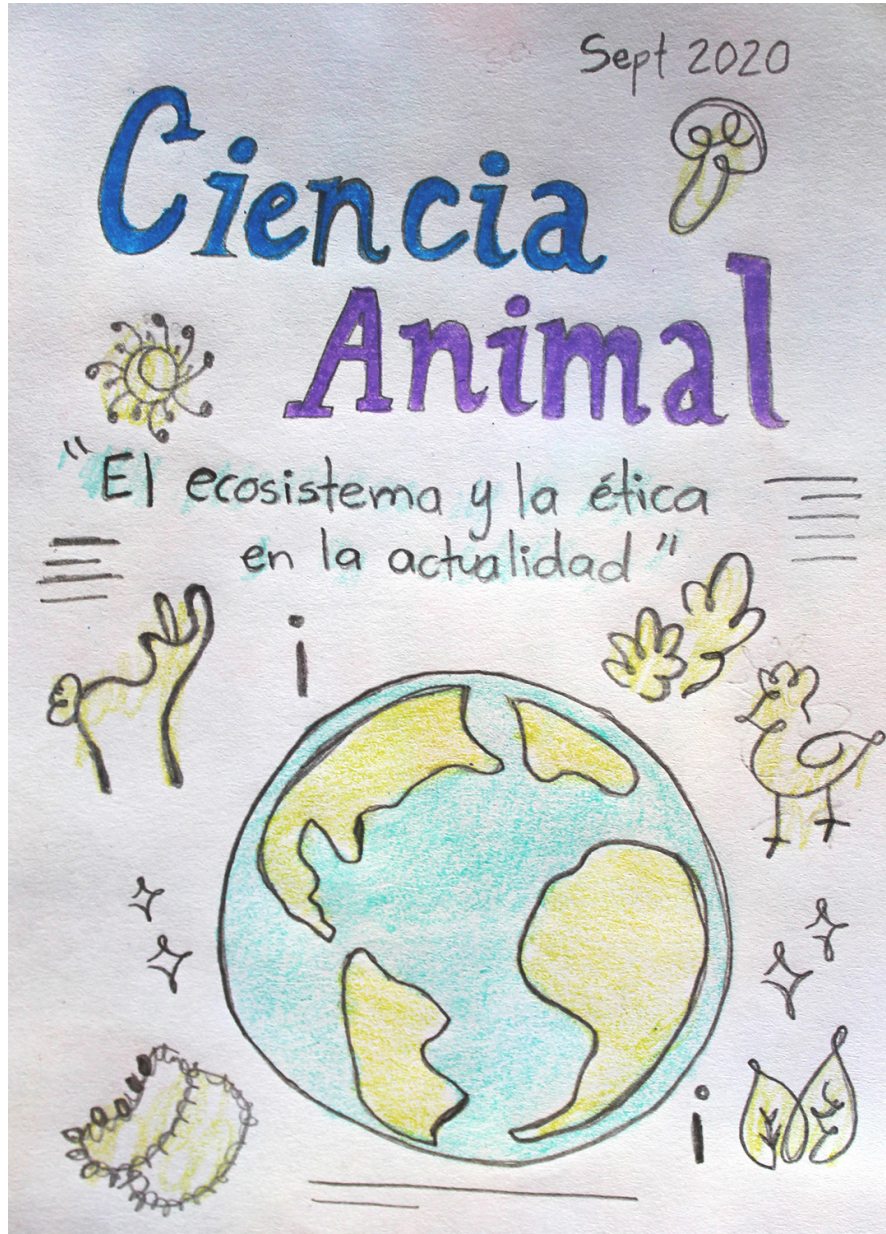 Sept 2020
Ciencia
Animal
"El ecosistema y la ética
en la actualidad"
i
i